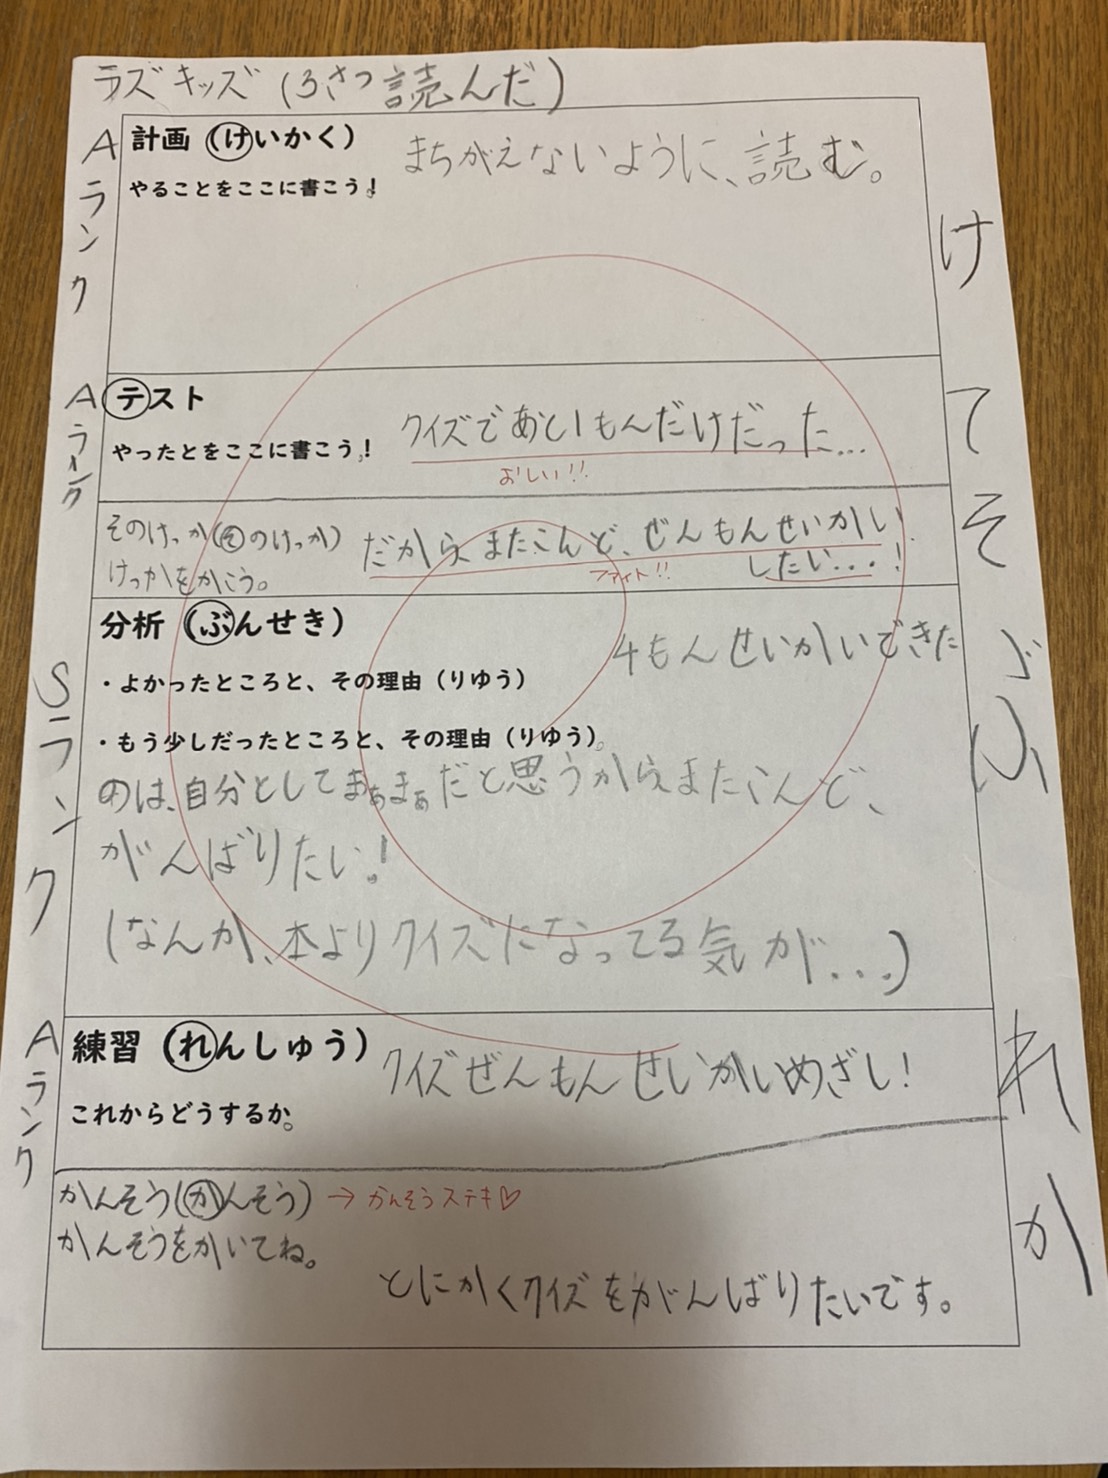 ラズキッズ(3さつ読んだ)
Aランク
計画(けいかく)
まちがえないように、読む。
やることをここに書こう!
け
Aランク
テスト
クイズであと1もんだけだった...
やったとをここに書こう!
おしい!!
て
そのけっか(そのけっか)
だからまたこんど、ぜんもんせいかい
けっかをかこう。
ファイト!!
したい...!
そ
Sランク
分析(ぶんせき)
4もんせいかいできた
・よかったところと、その理由(りゆう)
・もう少しだったところと、その理由(りゆう)。
のは、自分としてまぁまぁだと思うからまたこんど、
がんばりたい!
(なんか、本よりクイズになってる気が...)
ぶ
Aランク
練習(れんしゅう)
クイズぜんもんせいかいめざし!
これからどうするか。
れ
かんそう(かんそう)→かんそうステキ♡
かんそうをかいてね。
とにかくクイズをがんばりたいです。
か